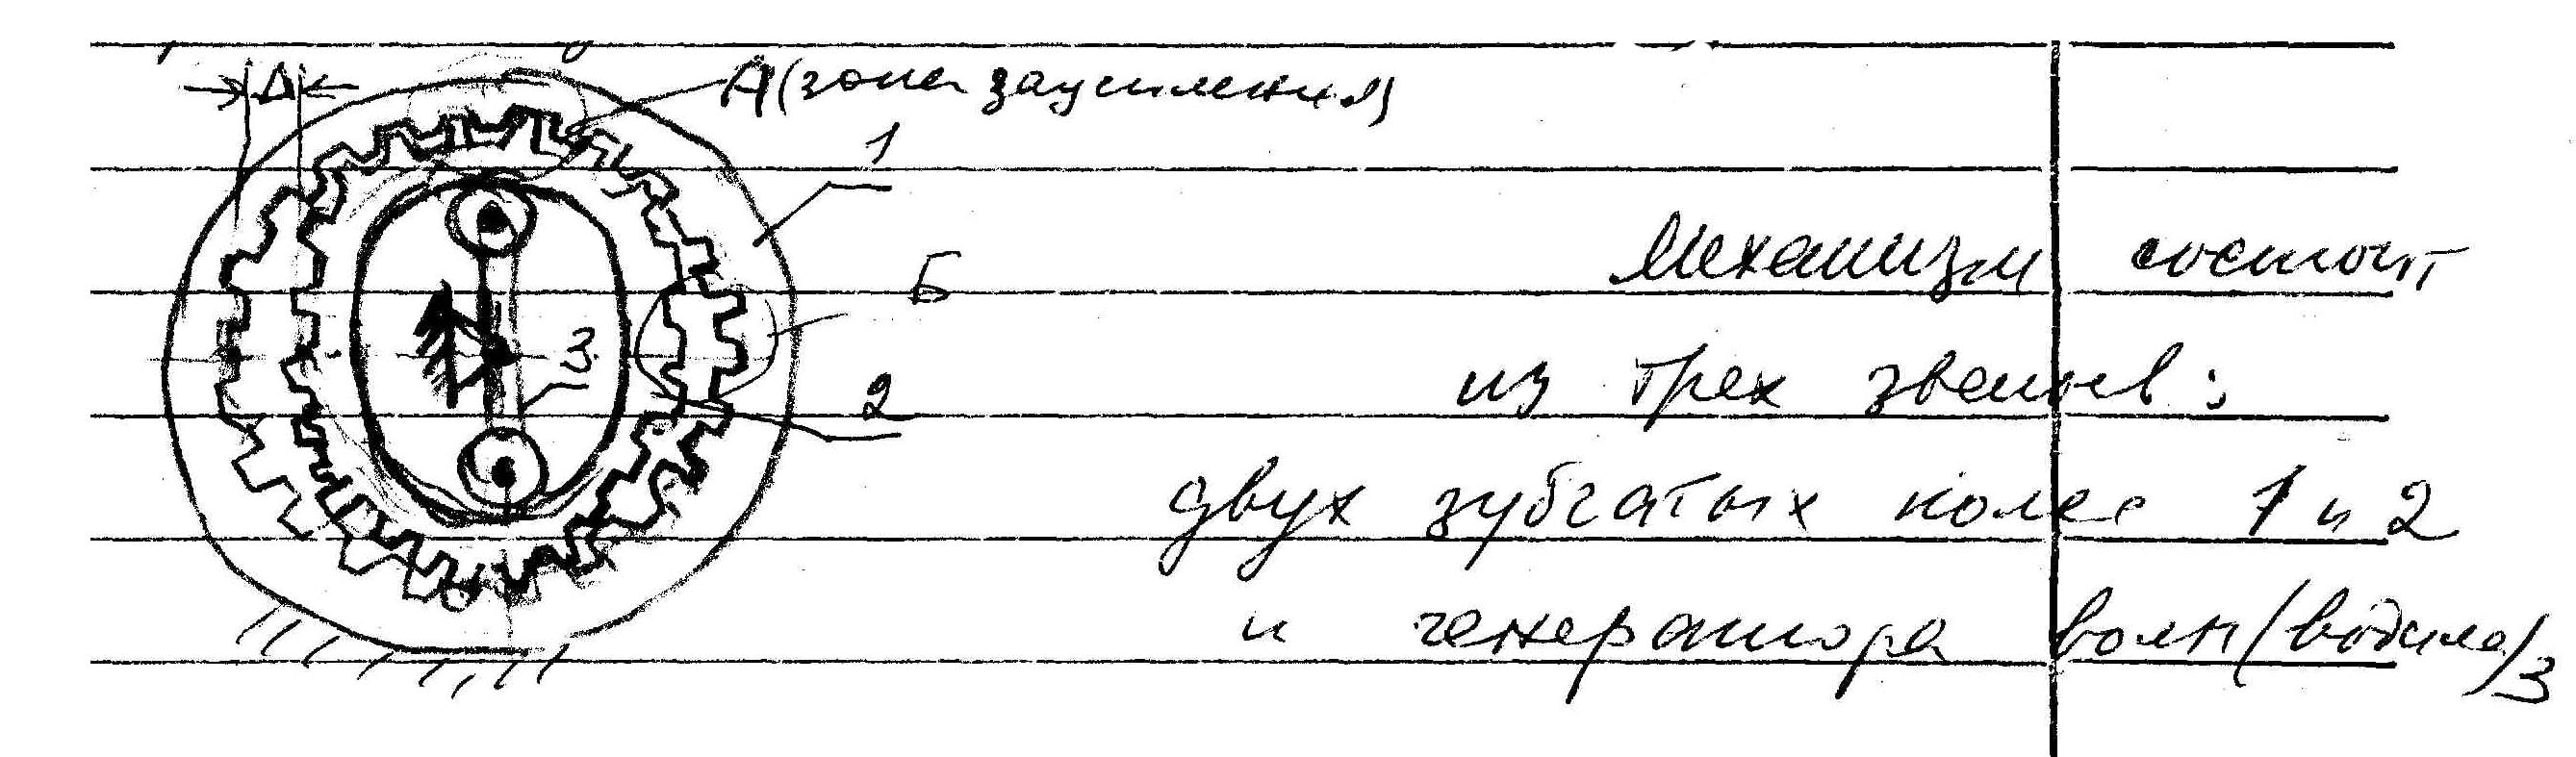 Δ
А (зона зацепления)
1
Б
3
2
Механизм состоит
из трех звеньев:
двух зубчатых колес 1 и 2
и генератора волн (водила) 3